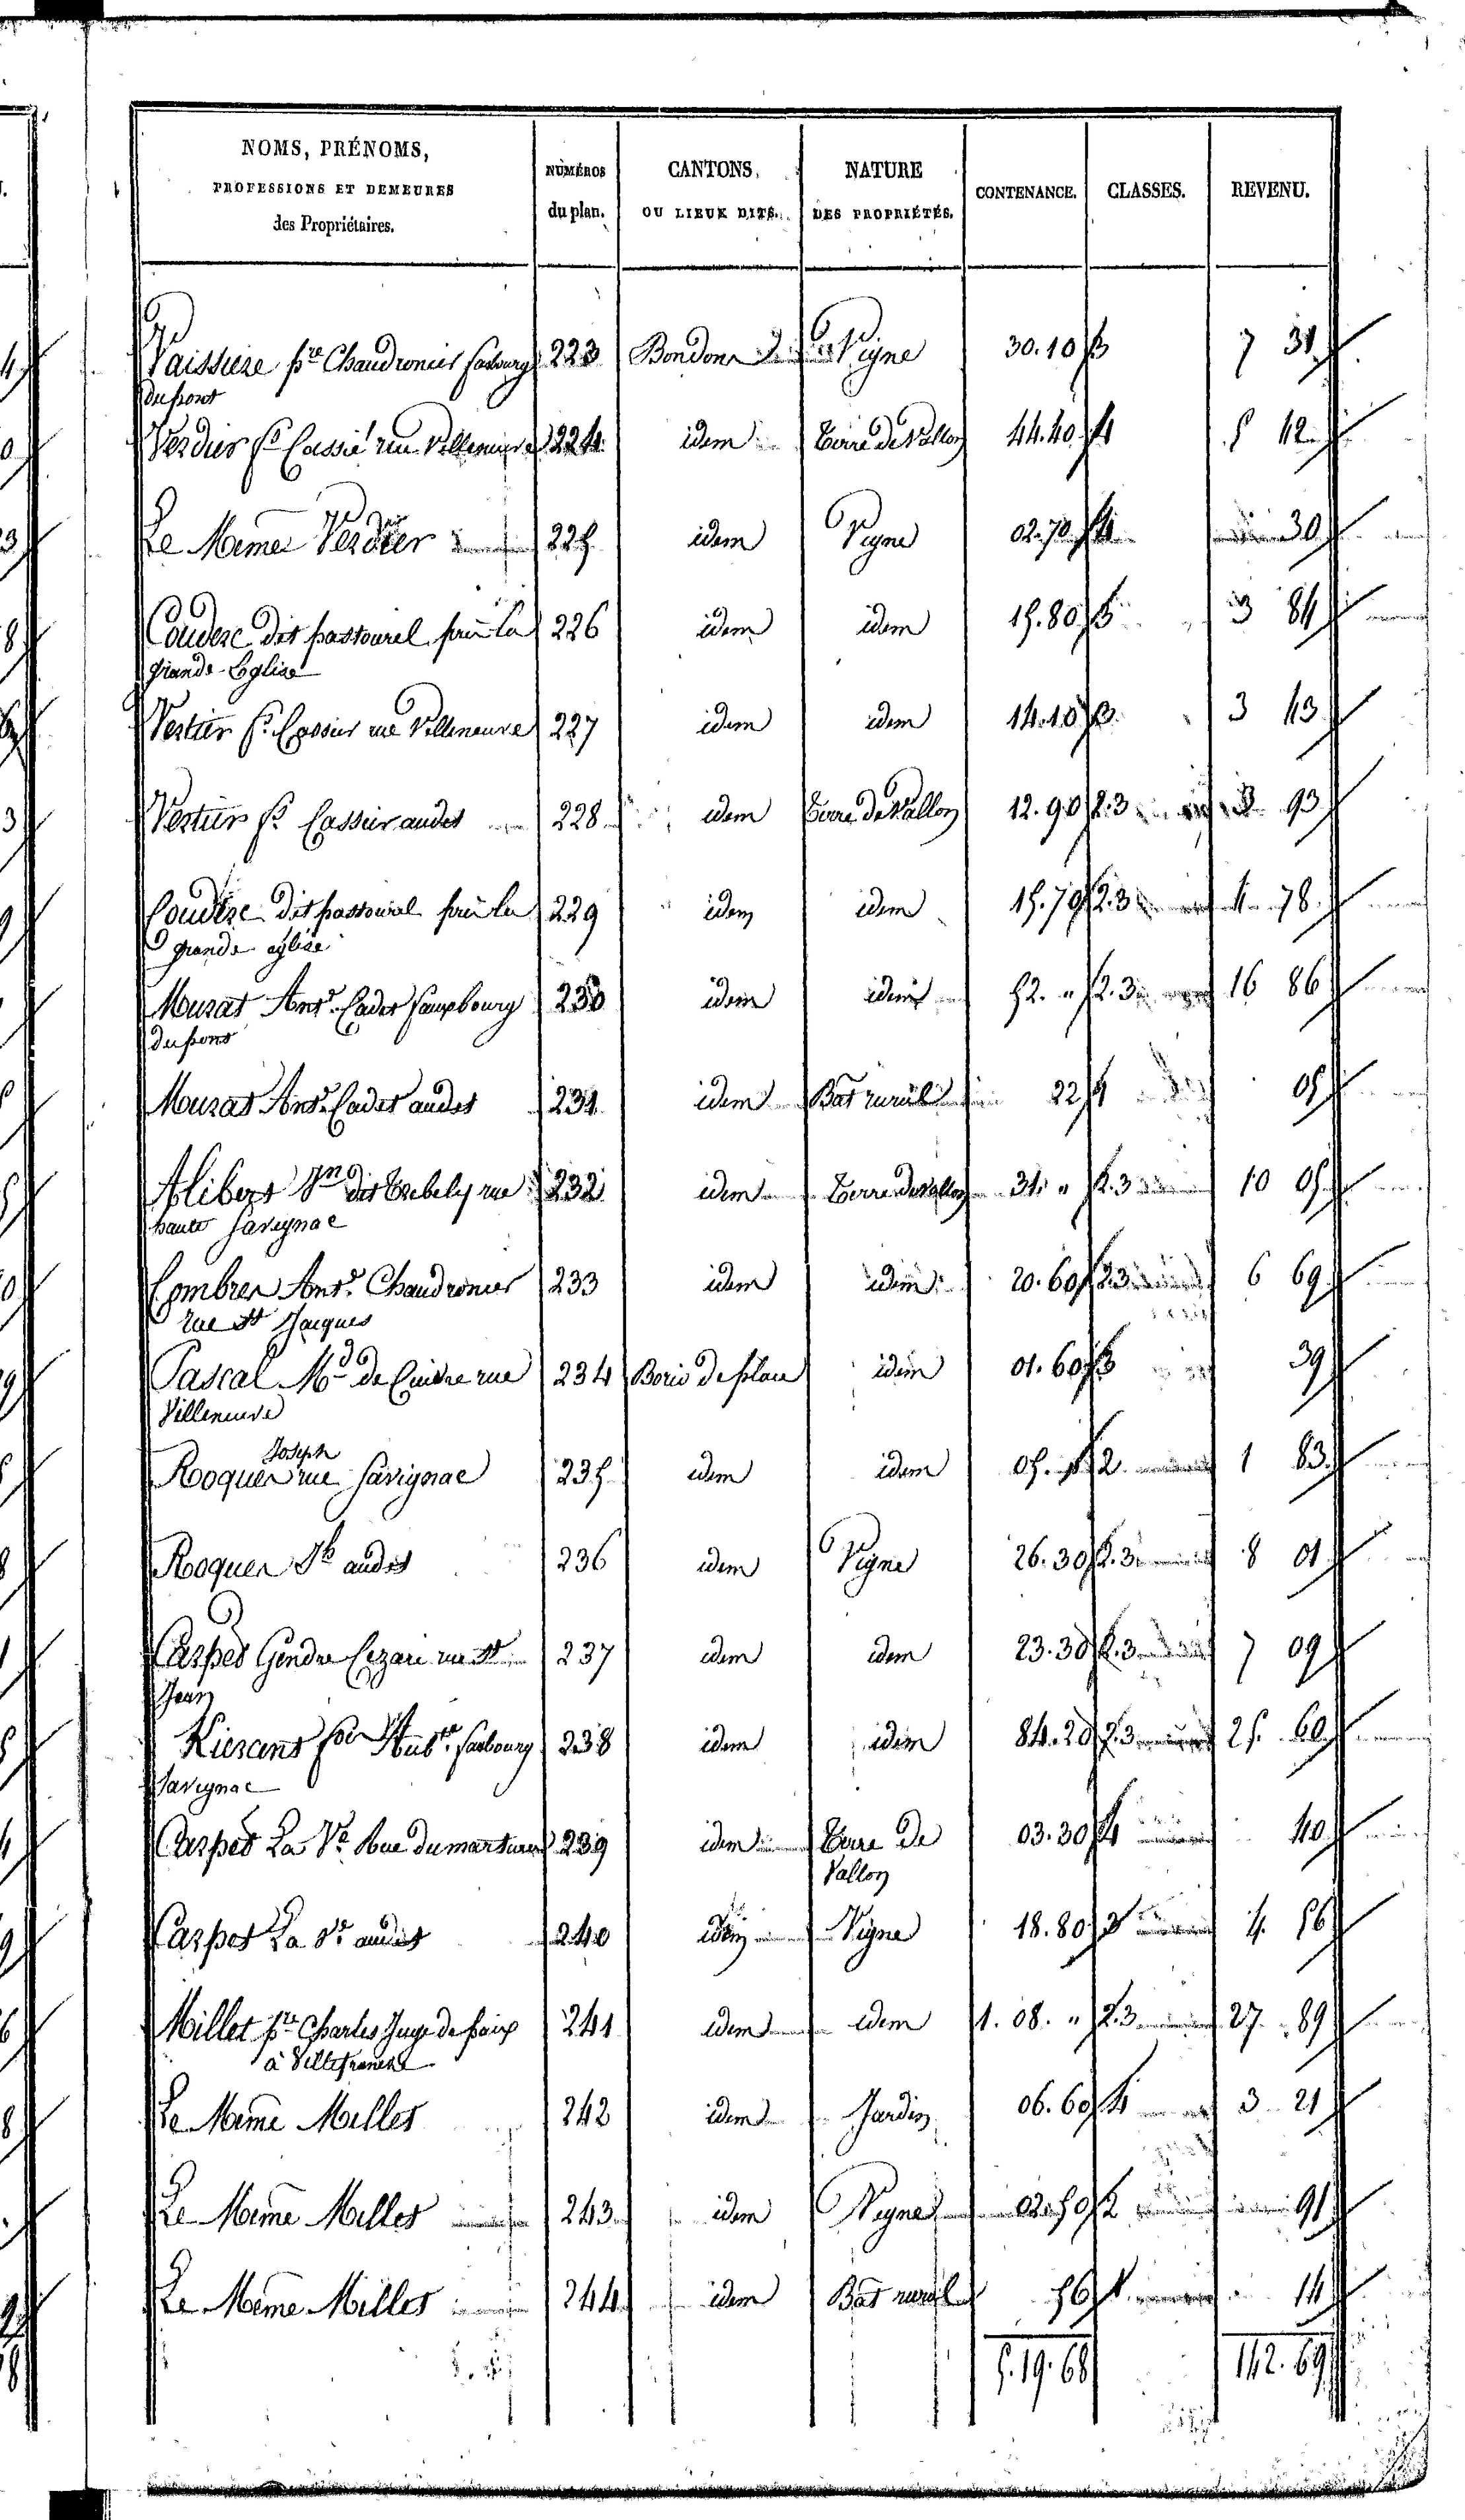 NOMS, PRÉNOMS,
PROFESSIONS ET DEMEURES
des Propriétaires.
NUMÉROS
du plan.
CANTONS,
OU LIEUX DITS.
NATURE
DES PROPRIÉTÉS.
CONTENANCE.
CLASSES.
REVENU.
Vaissiere pre Chaudronier faubourg 223 Bondons Vigne 30.10 3 7 31
dupont
Verdier fs Cassié rue Villeneuve 224 idem Terre de Vallon 44.40 4 5 42
Le Meme Verdier 225 idem Vigne 02.70 4 30
Couderc dit pastourel près la 226 idem idem 15.80 3 3 84
grande Eglise
Vestier fs Cassier rue Villeneuve 227 idem idem 14.10 3 3 43
Vestier fs Cassier audit 228 idem Terre de Vallon 12.90 2.3 3 93
Couderc dit pastourel près la 229 idem idem 15.70 2.3 4 78
grande eglise
Murat Ante Cadet fauxbourg 230 idem idem 52. " 2.3 16 86
dupont
Murat Ante Cadet audit 231 idem Bat rural 22 1 05
Alibert Jn dit Trebely rue 232 idem Terre de Vallon 31. " 2.3 10 05
haute Savignac
Combres Ante Chaudronier 233 idem idem 20.60 2.3 6 69
rue St Jacques
Pascal Md de Cuivre rue 234 Borie de plane idem 01.60 3 39
Villeneuve
Joseph
Roques rue Savignac 235 idem idem 05. 2 1 83
Roques Jh audit 236 idem Vigne 26.30 2.3 8 01
Caspes Gendre Cezari rue St 237 idem idem 23.30 2.3 7 09
Jean
faubourg 238 idem idem 84.20 2.3 25 60
Savignac
Caspet La Ve Rue du marture 239 idem Terre de 03.30 4 40
Vallon
Caspet La Ve audit 240 idem Vigne 18.80 3 4 56
Millet pre Charles Juge de paix 241 idem idem 1. 08. " 2.3 27 89
à Villefranche
Le Meme Millet 242 idem Jardin 06.60 4 3 21
Le Meme Millet 243 idem Vigne 02.50 2 91
Le Meme Millet 244 idem Bat rural 56 1 14
5.19.68 142.69